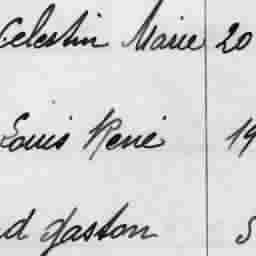 Celestin Marie 20
Louis René 19
d Gaston 5